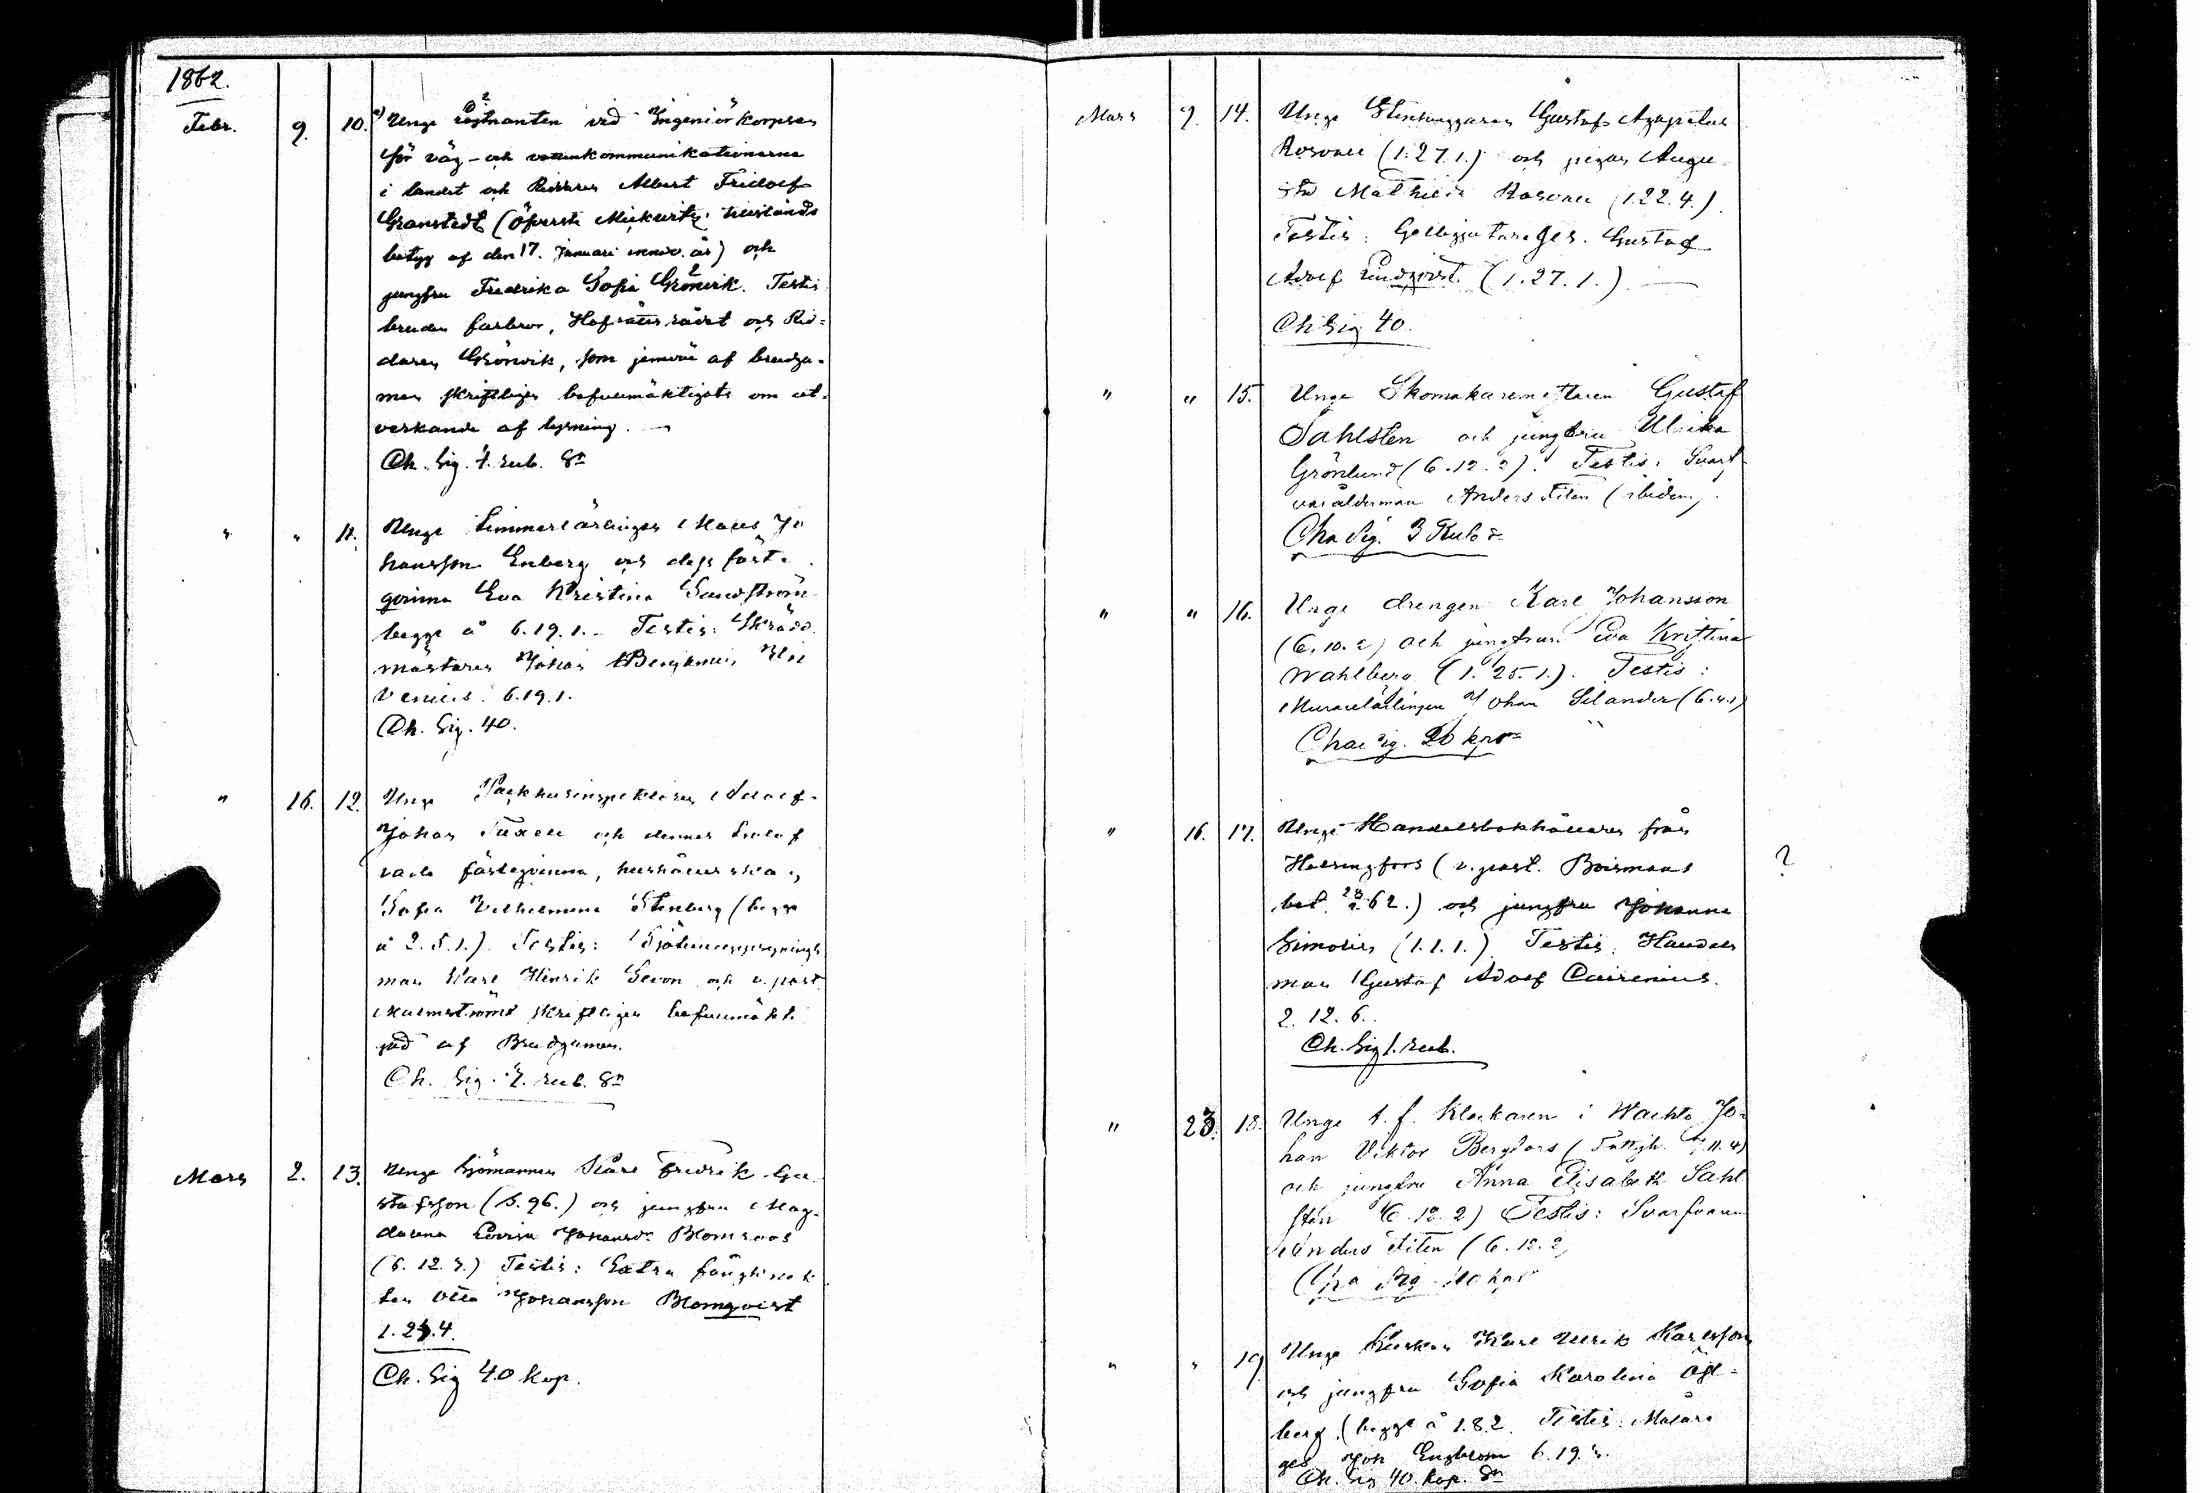 1862.
Febr. 9. 10. Unge vid Ingeniörkorpsen
för väg- och vattenkommunikationerna
i landet och Riddaren Albert Fridolf
Granstedt (öfverste tillstånds
betyg af den 17. Januari år) och
jungfru Fredrika Sofia Grönvik. Testis
brudens farbror, Hofrätts rådet och Rid-
daren Grönvik, som jemväl af brudga-
men skriftligen befullmäktigats om ut-
verkande af lysning. —
Ch. Sig. rub. Sr
" " 11. Unge Timmerlärlingen Jo
hansson Enberg och dess fäst-
qvinna Eva Kristina Sundström
begge å 6.19.1. - Testis: Skräd
mästaren Johan Benjamin
6.19.1.
Ch. Sig. 40.
" 16. 12. Unge Packhusinspektoren Adolf
Johan och dennes trolof
vade fästeqvinna, hushållerskan
Sofia Vilhelmina Stenberg (begge
å 2.5.1.). Testis:
man Karl Henrik och v. past.
Malmström skriftligen befullmäkti
gad af Brudgumen.
Ch. Sig. rub. Sr
Mars 2. 13. Unge Sjömannen Karl Fredrik Gu-
stafsson (S. 96.) och jungfru Mag-
dalena Lovisa Johansdr Blomroos
(6. 12. 3.) Testis: Extra
Otto Johansson Blomqvist
1. 24. 4.
Ch. Sig 40 kop.
Mars 9. 14. Unge Stenhuggaren Gustaf Agapetus
(1.27.1.) och pigan Augu-
sta Mathilda (1.22.4.).
Testis: Gelbgjutareges. Gustaf
Adolf Lindqvist (1.27.1.). —
Ch Sig 40.
" " 15. Unge Skomakaremästaren Gustaf
Sahlsten och jungfru Ulrika
Grönlund (6.12.2). Testis: Svarf
vareålderman Anders Titen (ibidem).
Cha Sig. 3 Rub Sr
" " 16. Unge drengen Karl Johansson
(6.10.2) och jungfrun Eva Kristina
Wahlberg (1.25.1.). Testis:
Murarelärlingen Johan Selander (6.4.1)
Cha Sig. 20 kop Sr
" 16. 17. Unge Handelsbokhållaren från
Helsingfors (v. past. Boismans
bet. 62.) och jungfru Johanna
Simolin (1.1.1.). Testis: Handels
man Gustaf Adolf Cairenius.
2. 12. 6.
Ch. Sig 1. rub.
?
" 23. 18. Unge t. f. Klockaren i Wachto Jo-
han Viktor Bergfors (Fattigh. 11.4)
och jungfru Anna Elisabeth Sahl
sten (6.12.2) Testis: Svarfvaren
Anders Titen (6.12.2)
Cha Sig 40 kop
" " 19. Unge Kusken Karl Ulrik Karlsson
och jungfru Sofia Karolina Ögl-
berg (begge å 1.8.2. Testis: Målare
ges Joh Engblom 6.19.
Ch. Sig 40. kop. Sr